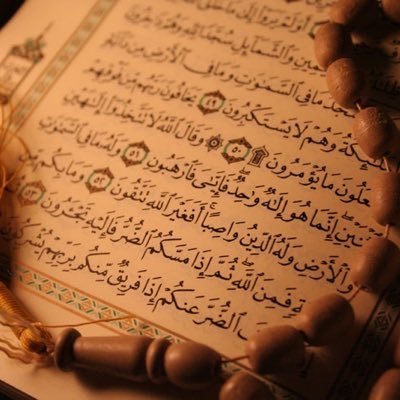 أَوَلَمْ يَرَوْا۟ إِلَىٰ مَا خَلَقَ
وَٱلشَّمَآئِلِ سُجَّدًا لِّلَّهِ وَهُمْ دَٰخِرُونَ
مَا فِى ٱلسَّمَٰوَٰتِ وَمَا فِى ٱلْأَرْضِ مِن دَآبَّةٍ
وَهُمْ لَا يَسْتَكْبِرُونَ ٤٩ يَخَافُونَ رَبَّهُم مِّن فَوْقِهِمْ
مَا يُؤْمَرُونَ ۩ ٥٠ ۞ وَقَالَ ٱللَّهُ لَا تَتَّخِذُوٓا۟ إِلَٰهَيْنِ
إِنَّمَا هُوَ إِلَٰهٌ وَٰحِدٌ فَإِيَّٰىَ فَٱرْهَبُونِ ٥١ وَلَهُۥ مَا فِى ٱلسَّمَٰوَٰتِ
وَٱلْأَرْضِ وَلَهُ ٱلدِّينُ وَاصِبًا أَفَغَيْرَ ٱللَّهِ تَتَّقُونَ ٥٢ وَمَا بِكُم مِّن
فَمِنَ ٱللَّهِ ثُمَّ إِذَا مَسَّكُمُ ٱلضُّرُّ فَإِلَيْهِ تَجْـَٔرُونَ ٥٣
ٱلضُّرَّ عَنكُمْ إِذَا فَرِيقٌ مِّنكُم بِرَبِّهِمْ يُشْرِكُونَ